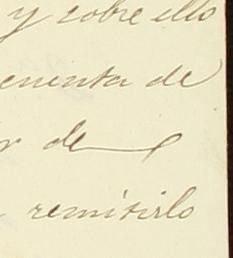 y sobre ello
cuenta de
r de
remitirlo